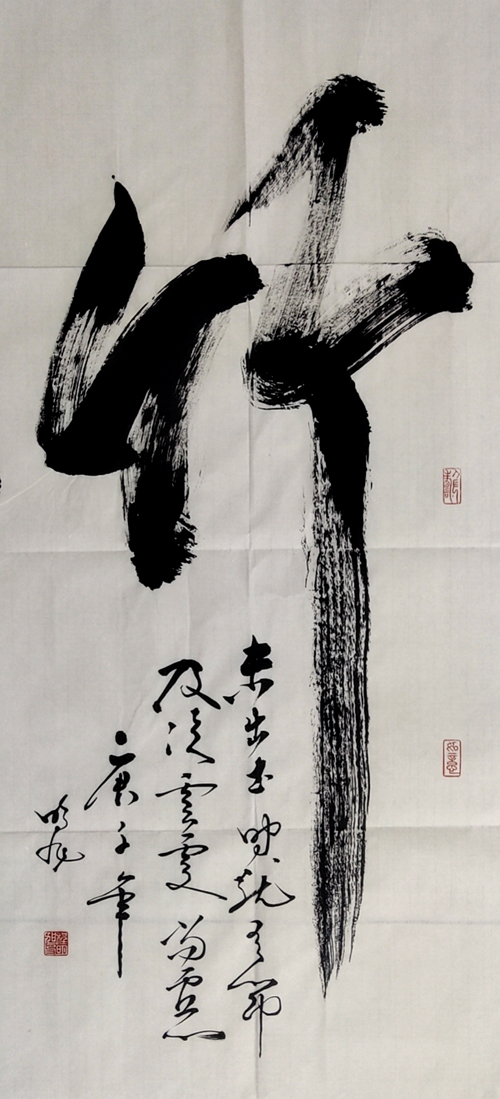 竹
未出土時就有節
及凌雲處尚虛心
庚子年
如意